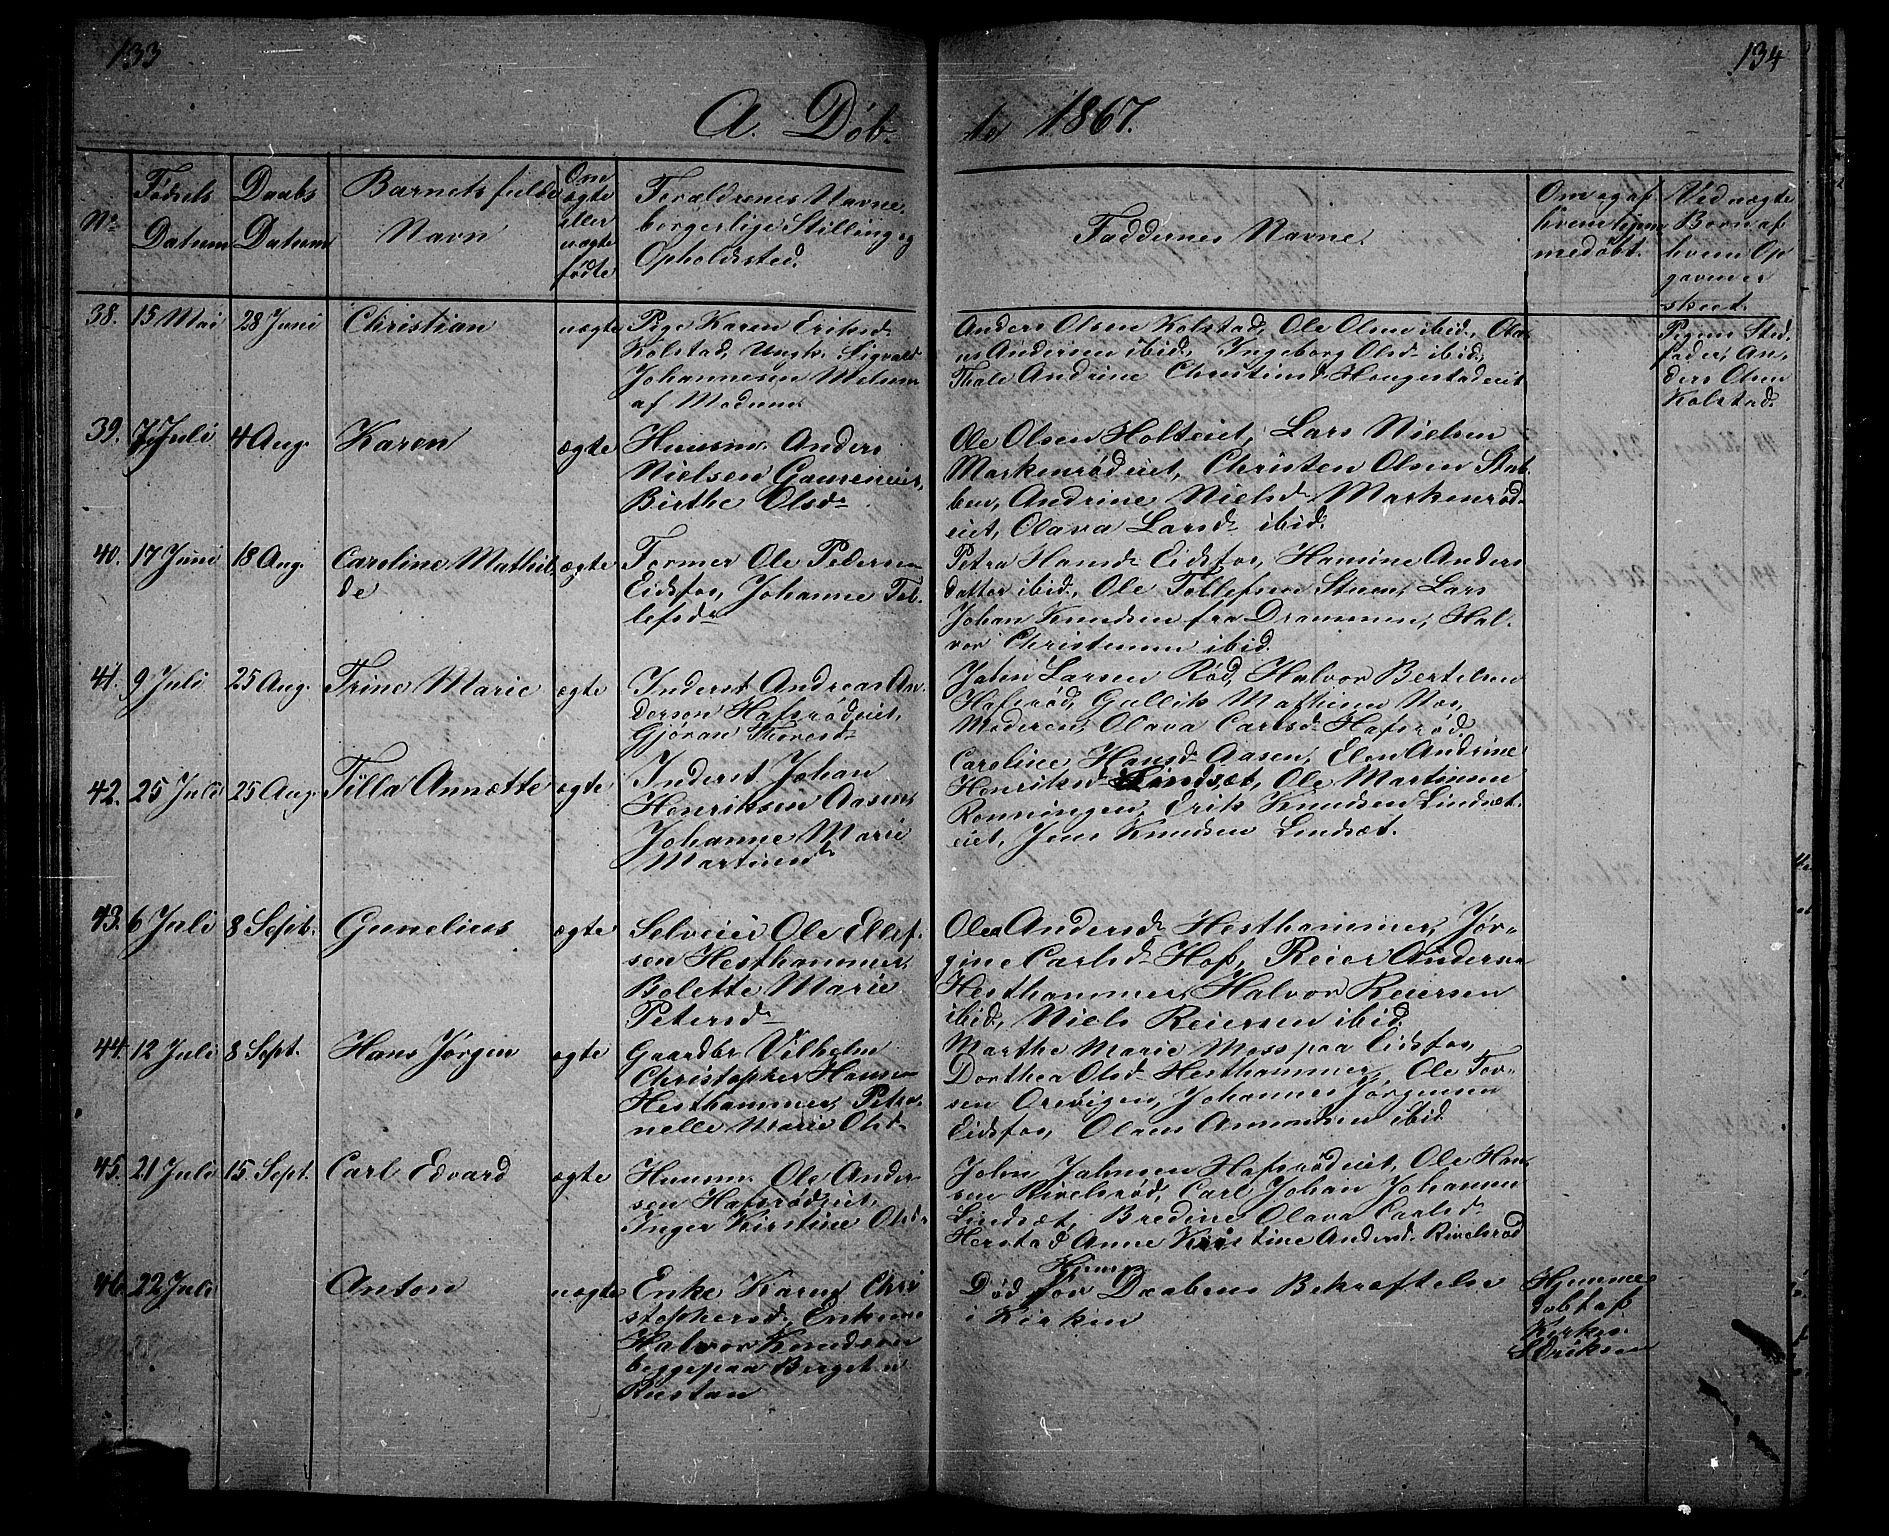 133
134
A. Døb-
te 1867.
No
Fødsels
Datum
Daabs
Datum
Barnets fulde
Navn
Om
ægte
eller
uægte
fødte
Forældrenes Navne,
borgerlige Stilling og
Opholdssted.
Faddernes Navne.
Om og af
hvem hjem-
medøbt.
Ved uægte
Børn af
hvem Op
gaven er
skeet.
38. 15 Mai 28 Juni Christian uægte
Pige Karen Eriksd-
Kolstad, Ungk. Sigvald
Johannesen
af Modum
Anders Olsen Kolstad, Ole Olsen ibid., Ola-
us Andersen ibid., Ingeborg Olsd- ibid.,
Thale Andrine Christiansd- Haugestadeiet
Pigens Sted
fader, An,
ders Olsen
Kolstad.
39. 7 Juli 4 Aug. Karen ægte
Huusm. Anders
Nielsen Gaureneiet,
Birthe Olsd-
Ole Olsen Holteiet, Lars Nielsen
Markenrødeiet, Christen Olsen Stub-
ben, Andrine Nielsd- Markenrød-
eiet, Olava Larsd- ibid.
40. 17 Juni 18 Aug. Caroline Mathil,
de
ægte
Former Ole Pedersen
Eidsfos, Johanne Tol-
lefsd-
Petra Hansd- Eidsfos, Hanine Anders
datter ibid., Ole Tollefsen Stuen, Lars
Johan Knudsen fra Drammen, Hal-
vor Christensen ibid.
41. 9 Juli 25 Aug. Trine Marie ægte
Inderst Andreas An-
dersen Hafsrødeiet,
Gjøran Thoresd-
John Larsen Rød, Halvor Bertelsen
Hafsrød, Gullik Mathisen Næs,
Moderen, Olava Carlsd- Hafsrød
42. 25 Juli 25 Aug. Tilla Annette ægte
Inderst Johan
Henriksen Aasen,
Johanne Marie
Martinsd-
Caroline Hansd- Aasen, Elen Andrine
Henriksd- Lindsæt, Ole Martinsen
Rønningen, Erik Knudsen Lindsæt-
eiet, Jens Knudsen Lindsæt.
43. 6 Juli 8 Septb. Gunelius ægte
Selveier Ole Ellef-
sen Hesthammer,
Bolette Marie
Petersd-
Olea Andersd- Hesthammer, Jør-
gine Carlsd- Hof, Reier Andersen
Hesthammer, Halvor Reiersen
ibid., Niels Reiersen ibid.
44. 12 Juli 8 Sept. Hans Jørgen ægte
Gaardbr. Vilhelm
Christopher Hansen
Hesthammer, Petro-
nelle Marie Olsd-
Marthe Marie Moss paa Eidsfos,
Dorthea Olsd- Hesthammer, Ole Tor-
sen Orevigen, Johannes Jørgensen
Eidsfos, Olaus Amundsen ibid
45. 21 Juli 15 Sept. Carl Edvard ægte
Huusm. Ole Ander-
sen Hafsrødeiet,
Inger Kirstine Olsd-
John Johnsen Hafsrødeiet, Ole Han
sen Rivelsrød, Carl Johan Johansen
Lindsæt, Bredine Olava Carlsd-
Herstad, Anne Kirstine Andersd- Rivelsrød
46. 22 Juli Anton uægte
Enke Karen Chri
stophersd, Enkem
Halvor Knudsen
begge paa Berget u
Rustan
Død før Hjemme Daabens Bekræftelse
i Kirken
Hjemme
døbt af
Kirkes.
Eriksen